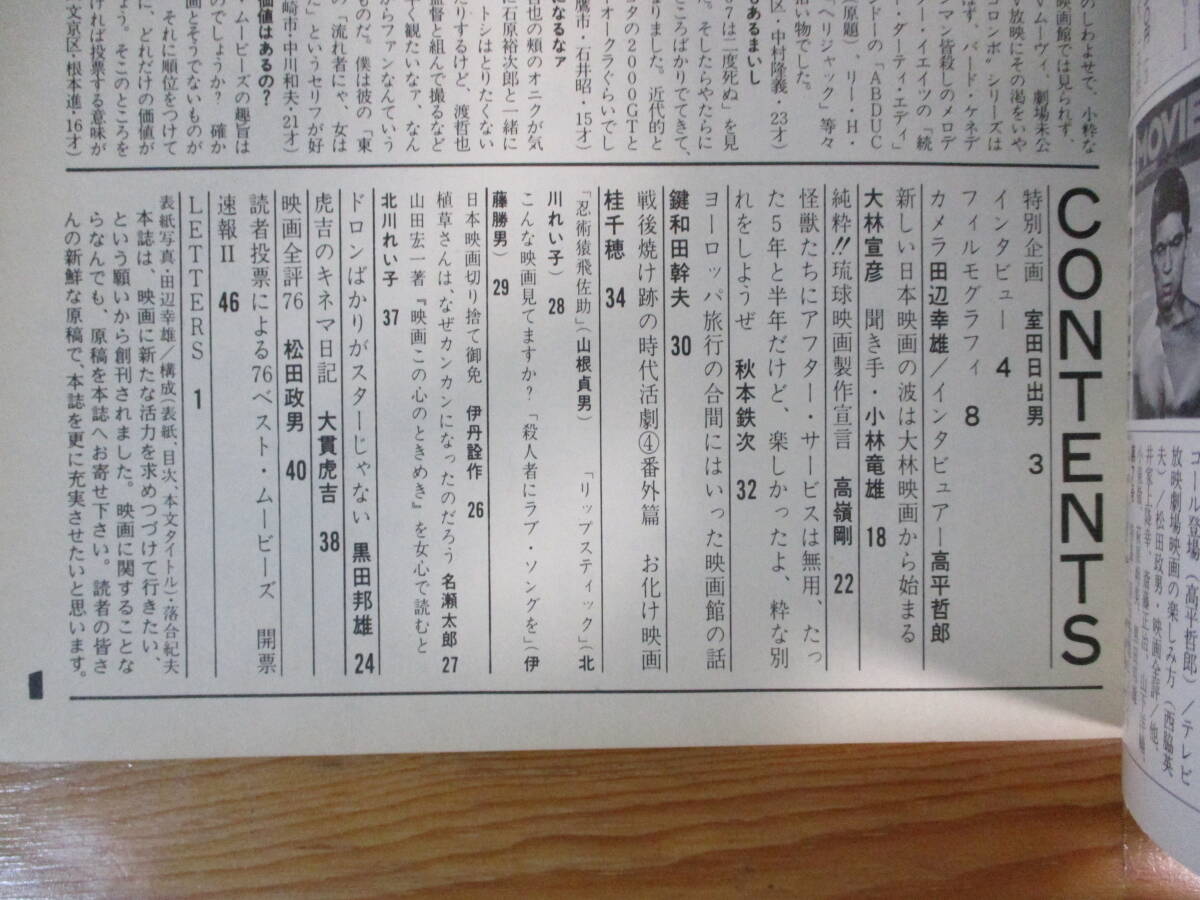 CONTENTS
特別企画　室田日出男　3
インタビュー　4
フィルモグラフィ　8
カメラ田辺幸雄／インタビュアー高平哲郎
新しい日本映画の波は大林映画から始まる
大林宣彦　聞き手・小林竜雄　18
純粋!!琉球映画製作宣言　高嶺剛　22
怪獣たちにアフター・サービスは無用、たっ
た5年と半年だけど、楽しかったよ、粋な別
れをしようぜ　秋本鉄次　32
ヨーロッパ旅行の合間にはいった映画館の話
鍵和田幹夫　30
戦後焼け跡の時代活劇④番外篇　お化け映画
桂千穂　34
「忍術猿飛佐助」（山根貞男）　「リップスティック」（北
川れい子）　28
こんな映画見てますか？「殺人者にラブ・ソングを」（伊
藤勝男）　29
日本映画切り捨て御免　伊丹詮作　26
植草さんは、なぜカンカンになったのだろう　名瀬太郎　27
山田宏一著『映画この心のときめき』を女心で読むと
北川れい子　37
ドロンばかりがスターじゃない　黒田邦雄　24
虎吉のキネマ日記　大貫虎吉　38
映画全評76　松田政男　40
読者投票による76ベスト・ムービーズ　開票
速報II　46
LETTERS　1
表紙写真・田辺幸雄／構成（表紙、目次、本文タイトル）・落合紀夫
本誌は、映画に新たな活力を求めつづけて行きたい、
という願いから創刊されました。映画に関することな
らなんでも、原稿を本誌へお寄せ下さい。読者の皆さ
んの新鮮な原稿で、本誌を更に充実させたいと思います。
のしわよせで、小粋な
映画館では見られず、
Vムーヴィ、劇場未公
V放映にその渇をいや
コロンボ〟シリーズは
はず。バード・ケネデ
マン皆殺しのメロデ
ター・イエイツの「続
・ダーティ・エディ」
ンドーの「ABDUC
（原題）、リー・H・
「ヘリジャック」等々
拾い物でした。
区・中村隆義・23才）
もあるまいし
7は二度死ぬ」を見
た。そしたらやたらに
ところばかりでてきて、
なりました。近代的と
タの2000GTと
オークラぐらいでし
鷹市・石井昭・15才）
になるなァ
哲也の頬のオニクが気
に石原裕次郎と一緒に
トシはとりたくない
たりするけど、渡哲也
早く観たいなァ。なん
監督と組んで撮るなど
からファンなんていう
ものだ。僕は彼の「東
の「流れ者にゃ、女は
た」というセリフが好
崎市・中川和夫・21才）
価値はあるの？
・ムービーズの趣旨は
のでしょうか？　確か
画とそうでないものが
それに順位をつけて
に、どれだけの価値が
ょう。そこのところを
ければ投票する意味が
文京区・根本進・16才）
MOVIE
コール登場（高平哲郎）／テレビ
放映劇場映画の楽しみ方（西脇英
夫）／松田政男・映画全評／他、